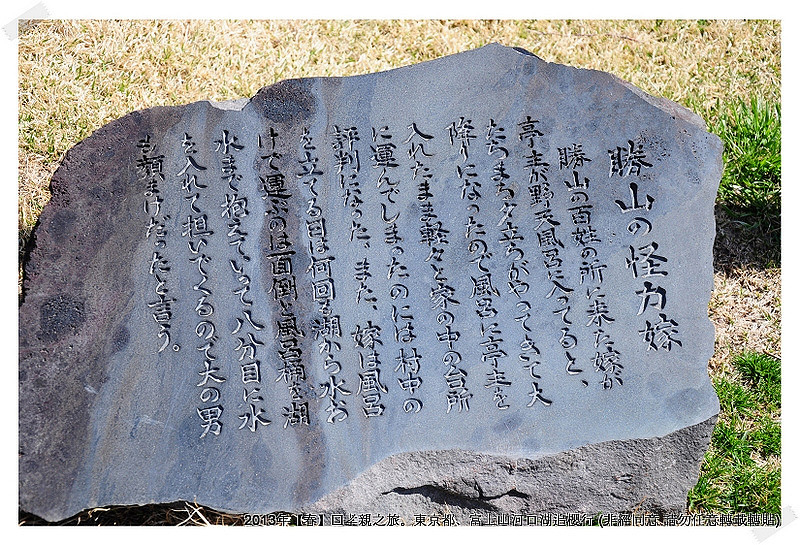 勝山の怪力嫁
勝山の百姓の所に来た嫁が
亭主が野天風呂に入ってると、
たちまち夕立ちがやってきて大
降りになったので風呂に亭主を
入れたまま軽々と家の中の台所
に運んでしまったのには村中の
評判になった。また、嫁は風呂
を立てる日は何回も湖から水お
けで運ぶのは面倒と風呂桶を湖
水まで抱えていって八分目に水
を入れて担いでくるので大の男
も顔まけだったと言う。
2013年【春】囯孝親之旅。東京都、富士山河口湖追櫻行 (非經同意,請勿任意轉載轉貼)